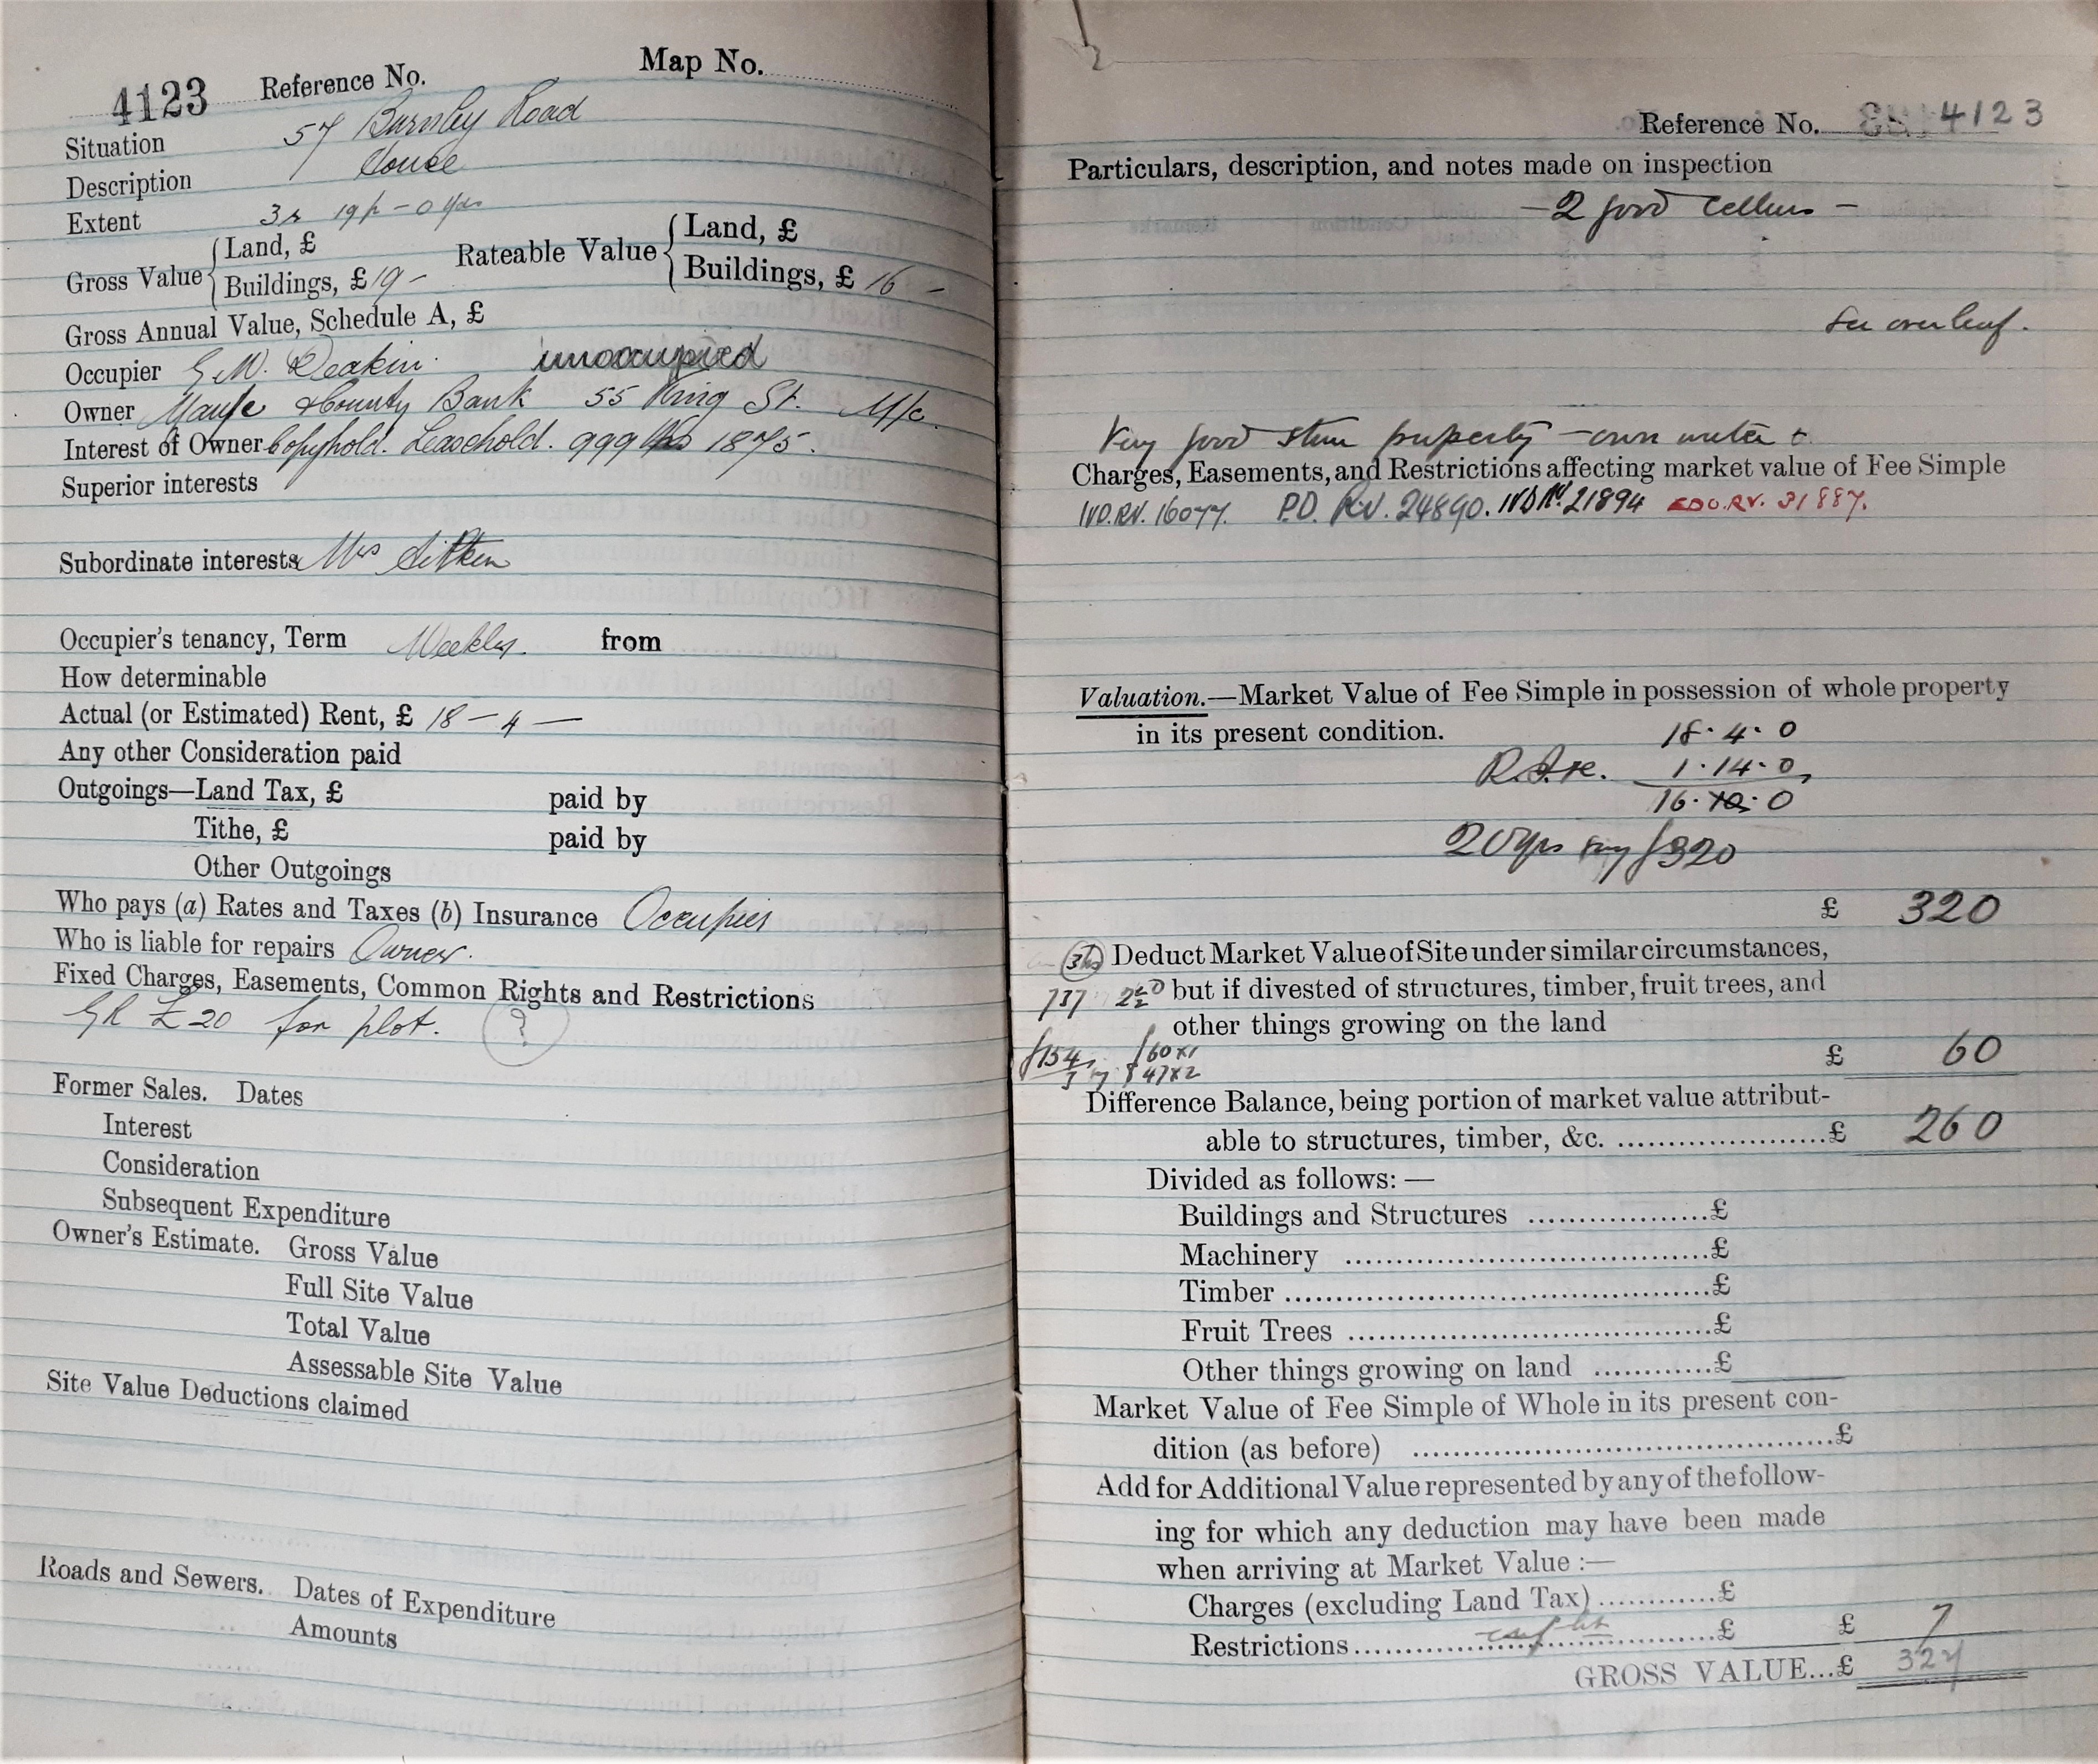 Map No.
4123 Reference No.
Situation 57 Burnley Road
Description House
Extent 19p - 0 yds
Gross Value { Land, £
Buildings, £ 19 -
Rateable Value { Land, £
Buildings, £ 16 -
Gross Annual Value, Schedule A, £
Occupier G.W. Deakin. unoccupied
Owner & County Bank 55 King St. M/c.
Interest of Owner Copyhold. Leasehold. 999 1875.
Superior interests
Subordinate interests Mrs Aitken
Occupier's tenancy, Term Weekly. from
How determinable
Actual (or Estimated) Rent, £ 18 - 4 -
Any other Consideration paid
Outgoings—Land Tax, £ paid by
Tithe, £ paid by
Other Outgoings
Who pays (a) Rates and Taxes (b) Insurance Occupier
Who is liable for repairs Owner.
Fixed Charges, Easements, Common Rights and Restrictions
GR £20 for plot. ?
Former Sales. Dates
Interest
Consideration
Subsequent Expenditure
Owner's Estimate. Gross Value
Full Site Value
Total Value
Assessable Site Value
Site Value Deductions claimed
Roads and Sewers. Dates of Expenditure
Amounts
Reference No. 4123
Particulars, description, and notes made on inspection
- 2 good cellars -
See overleaf.
Very good stone property - own water
Charges, Easements, and Restrictions affecting market value of Fee Simple
IVD.RV. 16077. P.D. RV. 24890. 21894 RV. 31887.
Valuation.—Market Value of Fee Simple in possession of whole property
in its present condition. 18.4.0
1.14.0
16.10.0
20 yrs say £320
£ 320
Deduct Market Value of Site under similar circumstances,
737 but if divested of structures, timber, fruit trees, and
other things growing on the land
£154 £60 x 1
3 47 x 2
£ 60
Difference Balance, being portion of market value attribut-
able to structures, timber, &c. ......................£ 260
Divided as follows:—
Buildings and Structures ...................£
Machinery ......................................£
Timber ............................................£
Fruit Trees .....................................£
Other things growing on land ............£
Market Value of Fee Simple of Whole in its present con-
dition (as before) ............................................£
Add for Additional Value represented by any of the follow-
ing for which any deduction may have been made
when arriving at Market Value :—
Charges (excluding Land Tax)............£
Restrictions......................................£ £ 7
GROSS VALUE...£ 327